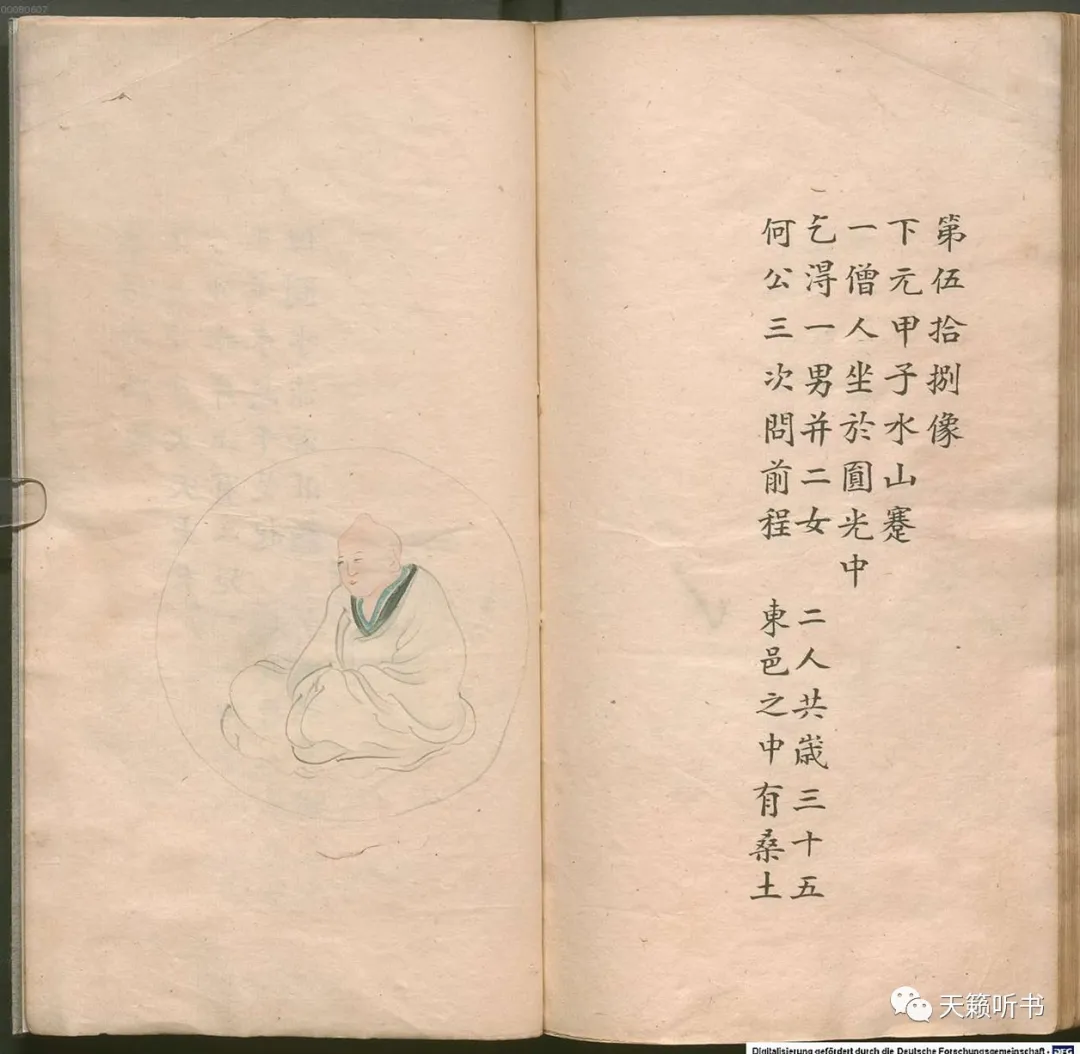 第伍拾捌像
下元甲子水山蹇
一僧人坐於圓光中
乞淂一男并二女 二人共歳三十五
何公三次問前程 東邑之中有桑土
00080607
天籁听书
Digitalisierung gefördert durch die Deutsche Forschungsgemeinschaft - DFG